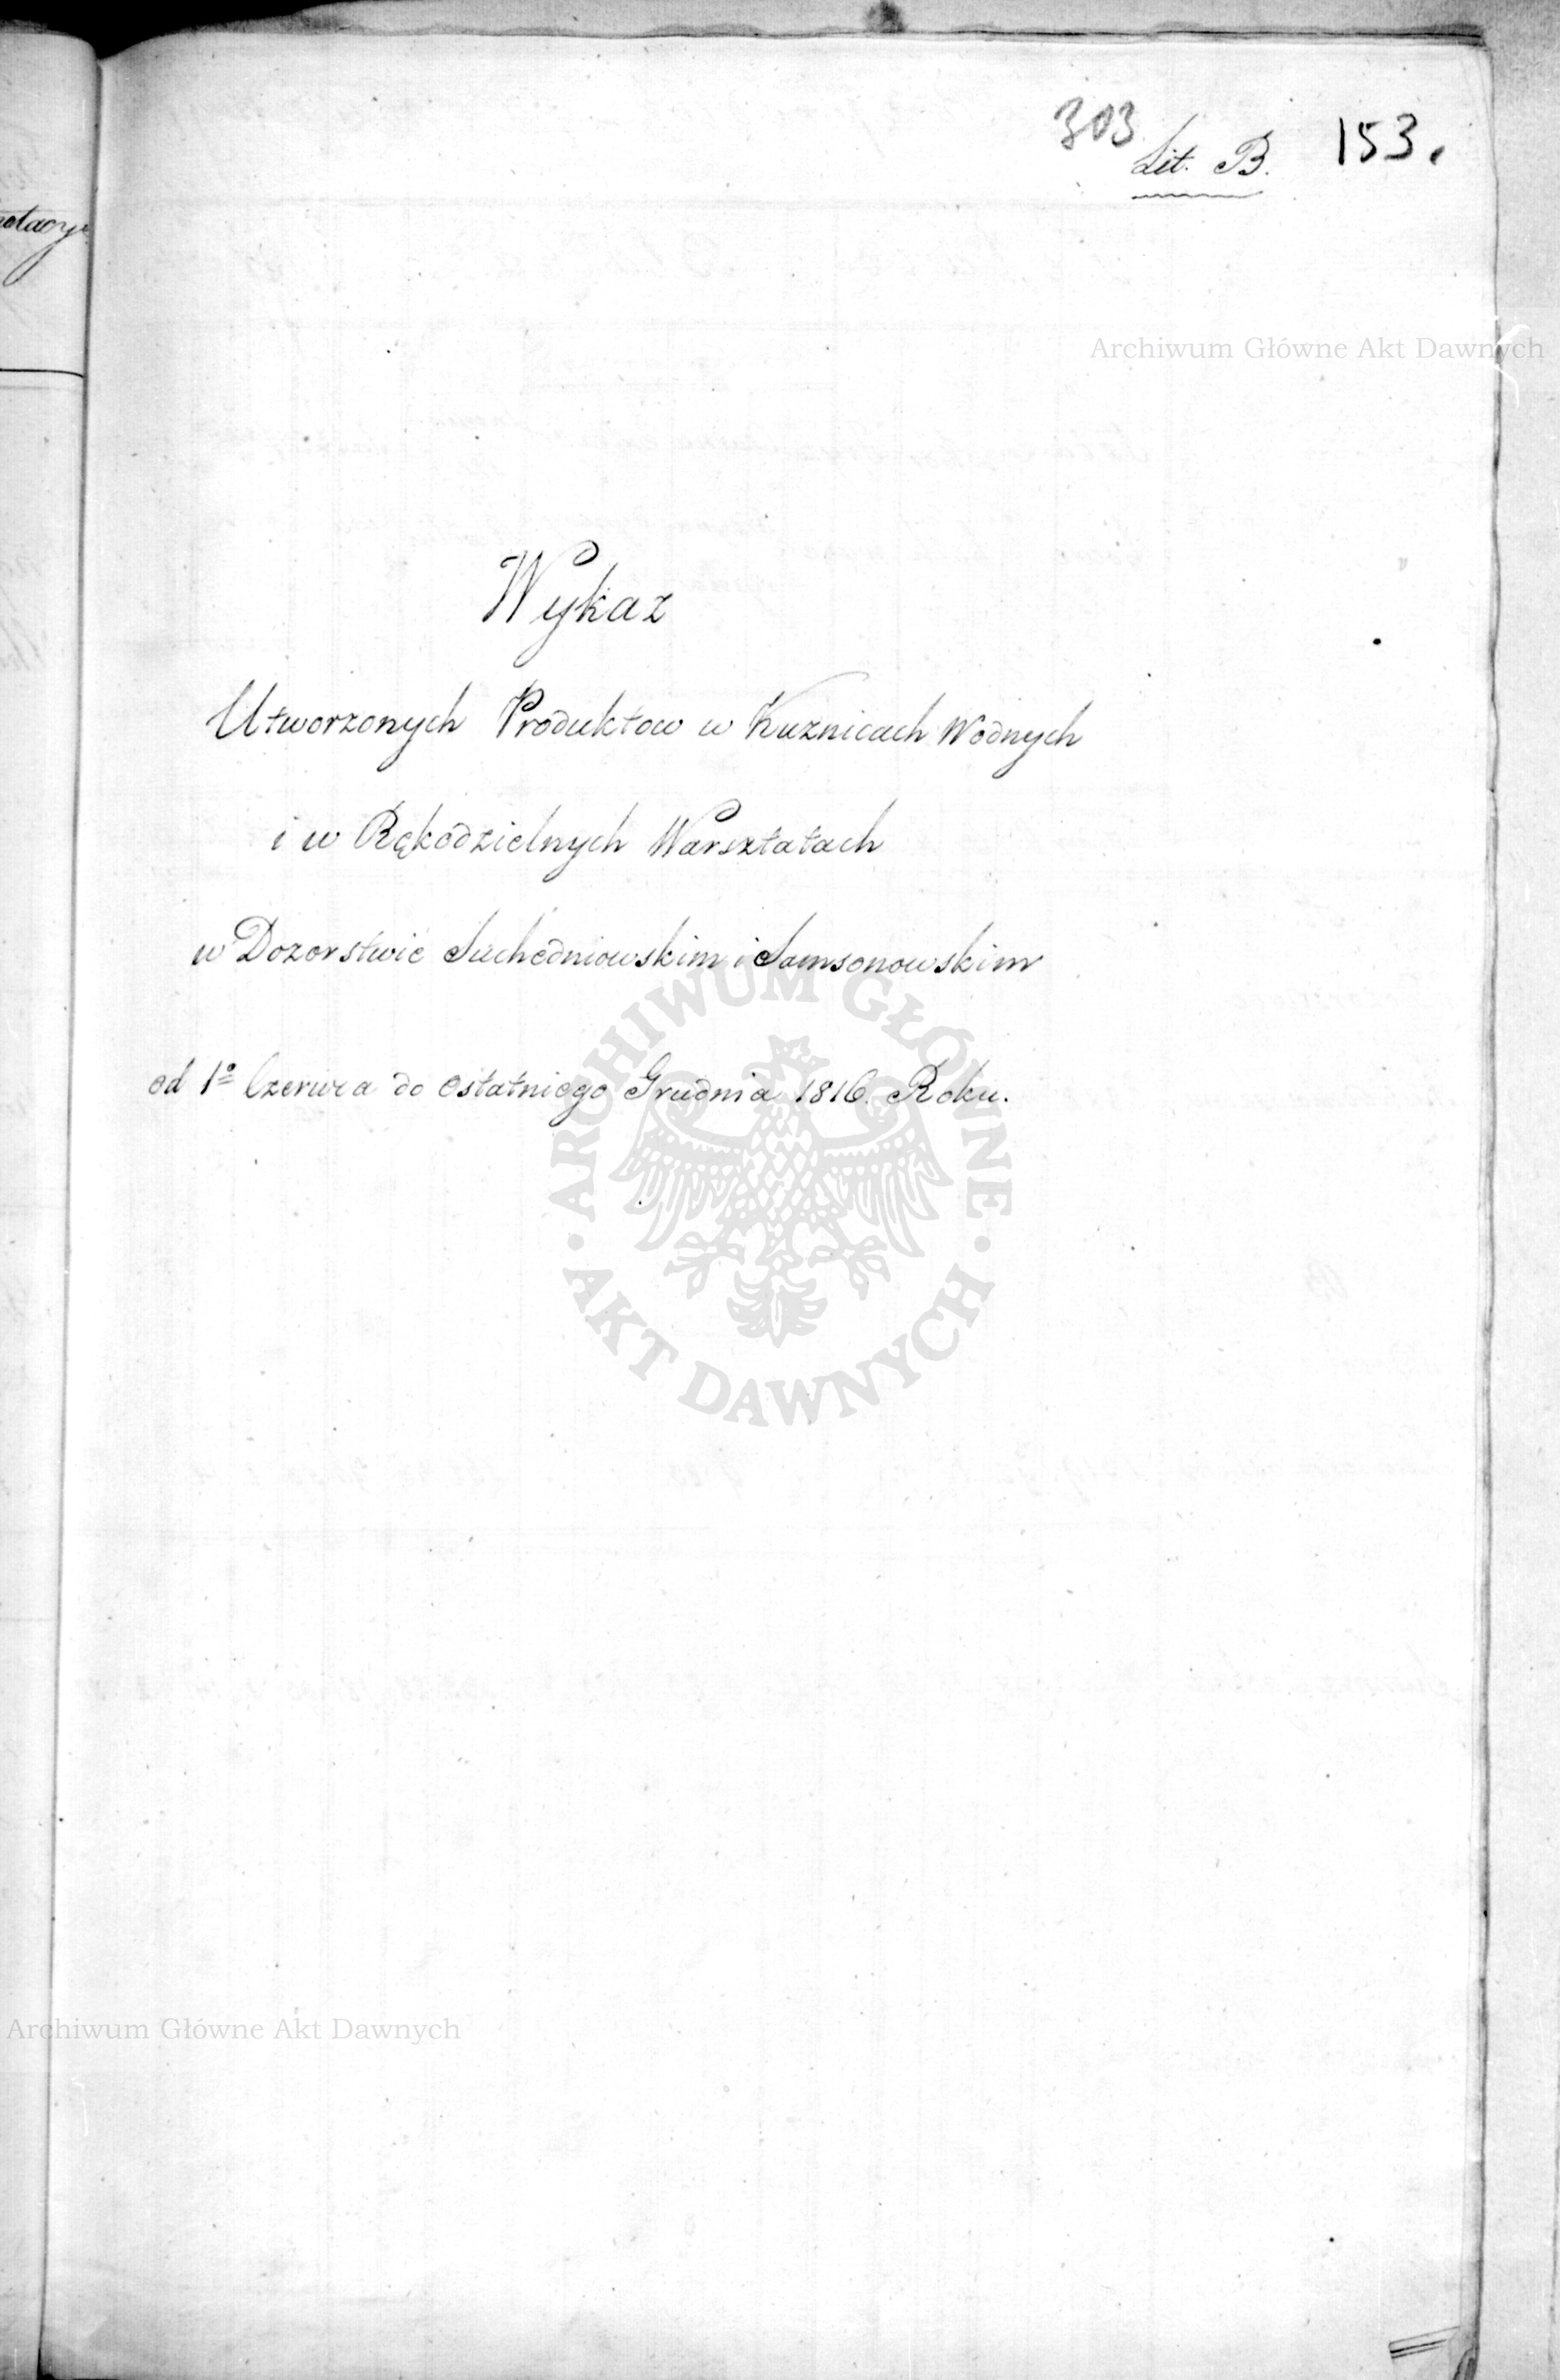 303
Lit. B. 153.
otacye
Archiwum Główne Akt Dawnych
Wykaz
Utworzonych Produktow w Kuznicach Wodnych
i w Rękodzielnych Warsztatach
w Dozorstwie Suchedniowskim i Samsonowskim
od 1o Czerwca do ostatniego Grudnia 1816. Roku.
ARCHIWUM GŁÓWNE AKT DAWNYCH
Archiwum Główne Akt Dawnych